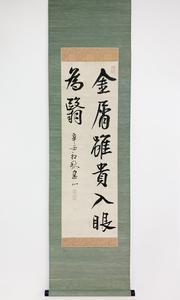 金屑雖貴入眼
為翳
辛酉初秋